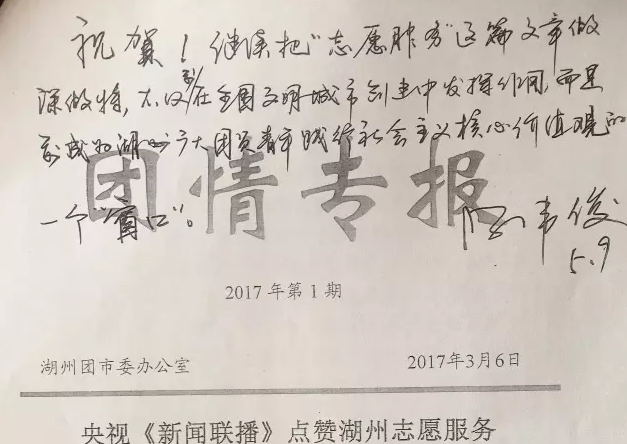 祝贺！继续把“志愿服务”这篇文章做
深做精，不仅要在全国文明城市创建中发挥作用，而且
要成为湖州广大团员青年践行社会主义核心价值观的
一个“窗口”。
韦俊
5.9
团情专报
2017年第1期
湖州团市委办公室 2017年3月6日
央视《新闻联播》点赞湖州志愿服务